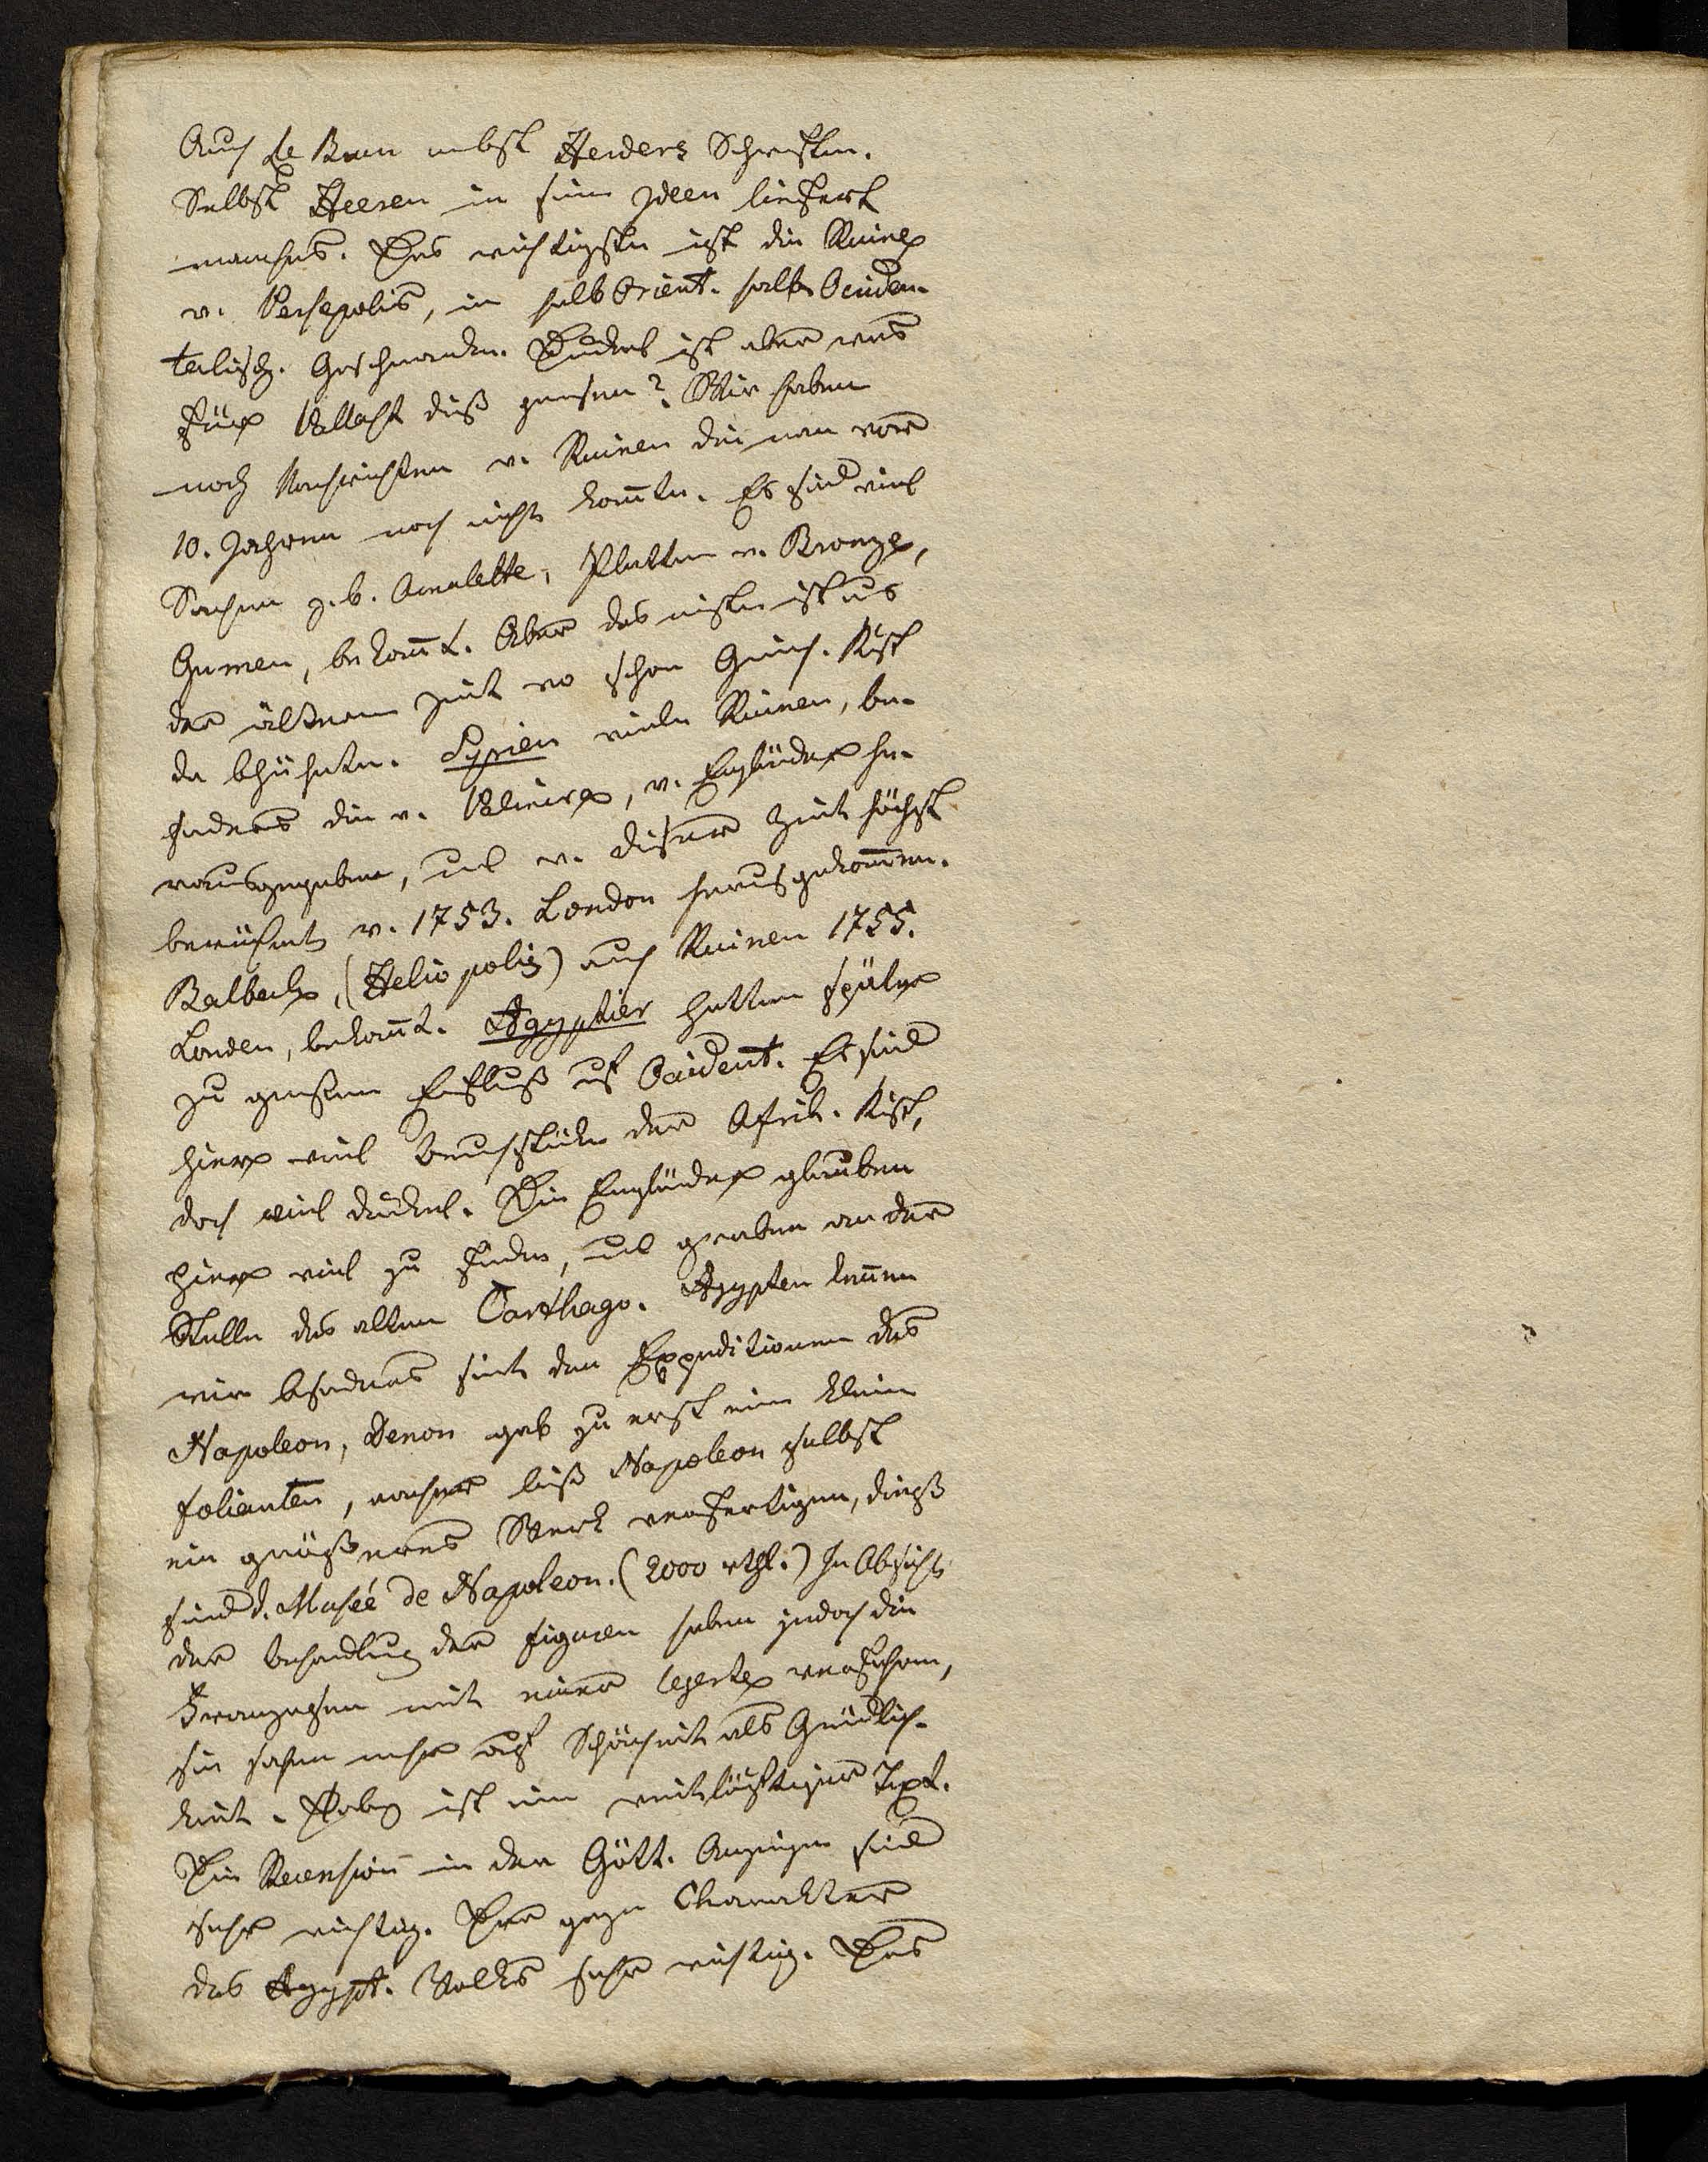 Auch Le Brun nebst Herders Schriften.
Selbst Heeren in sein Ideen liefert
manches. Das wichtigste ist die Ruine
v. Persepolis, in halb Orient. halb Occiden-
talisch. Geschmacke. Dunkel ist aber was
für Pallast dieß gewesen? Wir haben
noch Nachrichten v. Ruinen die man vor
10. Jahren noch nicht kannte. Es sind viel
Sachen z. b. Amulette, Platten v. Bronze,
Gemen, bekannt. Aber das meiste ist aus
der älteren Zeit wo schon Griech. Kunst
da blühete. Syrien viele Ruinen, be-
sonders die v. Palmira, v. Engländer he-
rausgegeben, und v. dieser Zeit höchst
berühmt v. 1753. London herausgekommen.
Balbeck, (Heliopolis) auch Ruinen 1755.
London, bekannt. Ägyptier hatten später
zu großen Einfluß auf Occident. Es sind
hier viel Bruchstücke der Afrik. Kunst,
doch viel dunkel. Die Engländer glauben
hier viel zu finden, und graben an der
Stelle des alten Carthago. Ägypten kennen
wir besonders seit den Expeditionen des
Napoleon, Denon gab zu erst ein klein
Folianten, nachher ließ Napoleon selbst
ein größeres Werk verfertigen, dieß
sind d. Museé de Napoleon. (2000 rthl.) In Absicht
der Behandlung der Figuren haben jedoch die
Franzosen mit einer legerte verfahren,
sie sahen mehr auf Schönheit als Gründlich-
keit. Dabey ist ein weitläuftiger Text.
Die Recension in den Gött. Anzeigen sind
sehr wichtig. Der ganze Charakter
des Ägypt. Volks sehr wichtig. Das